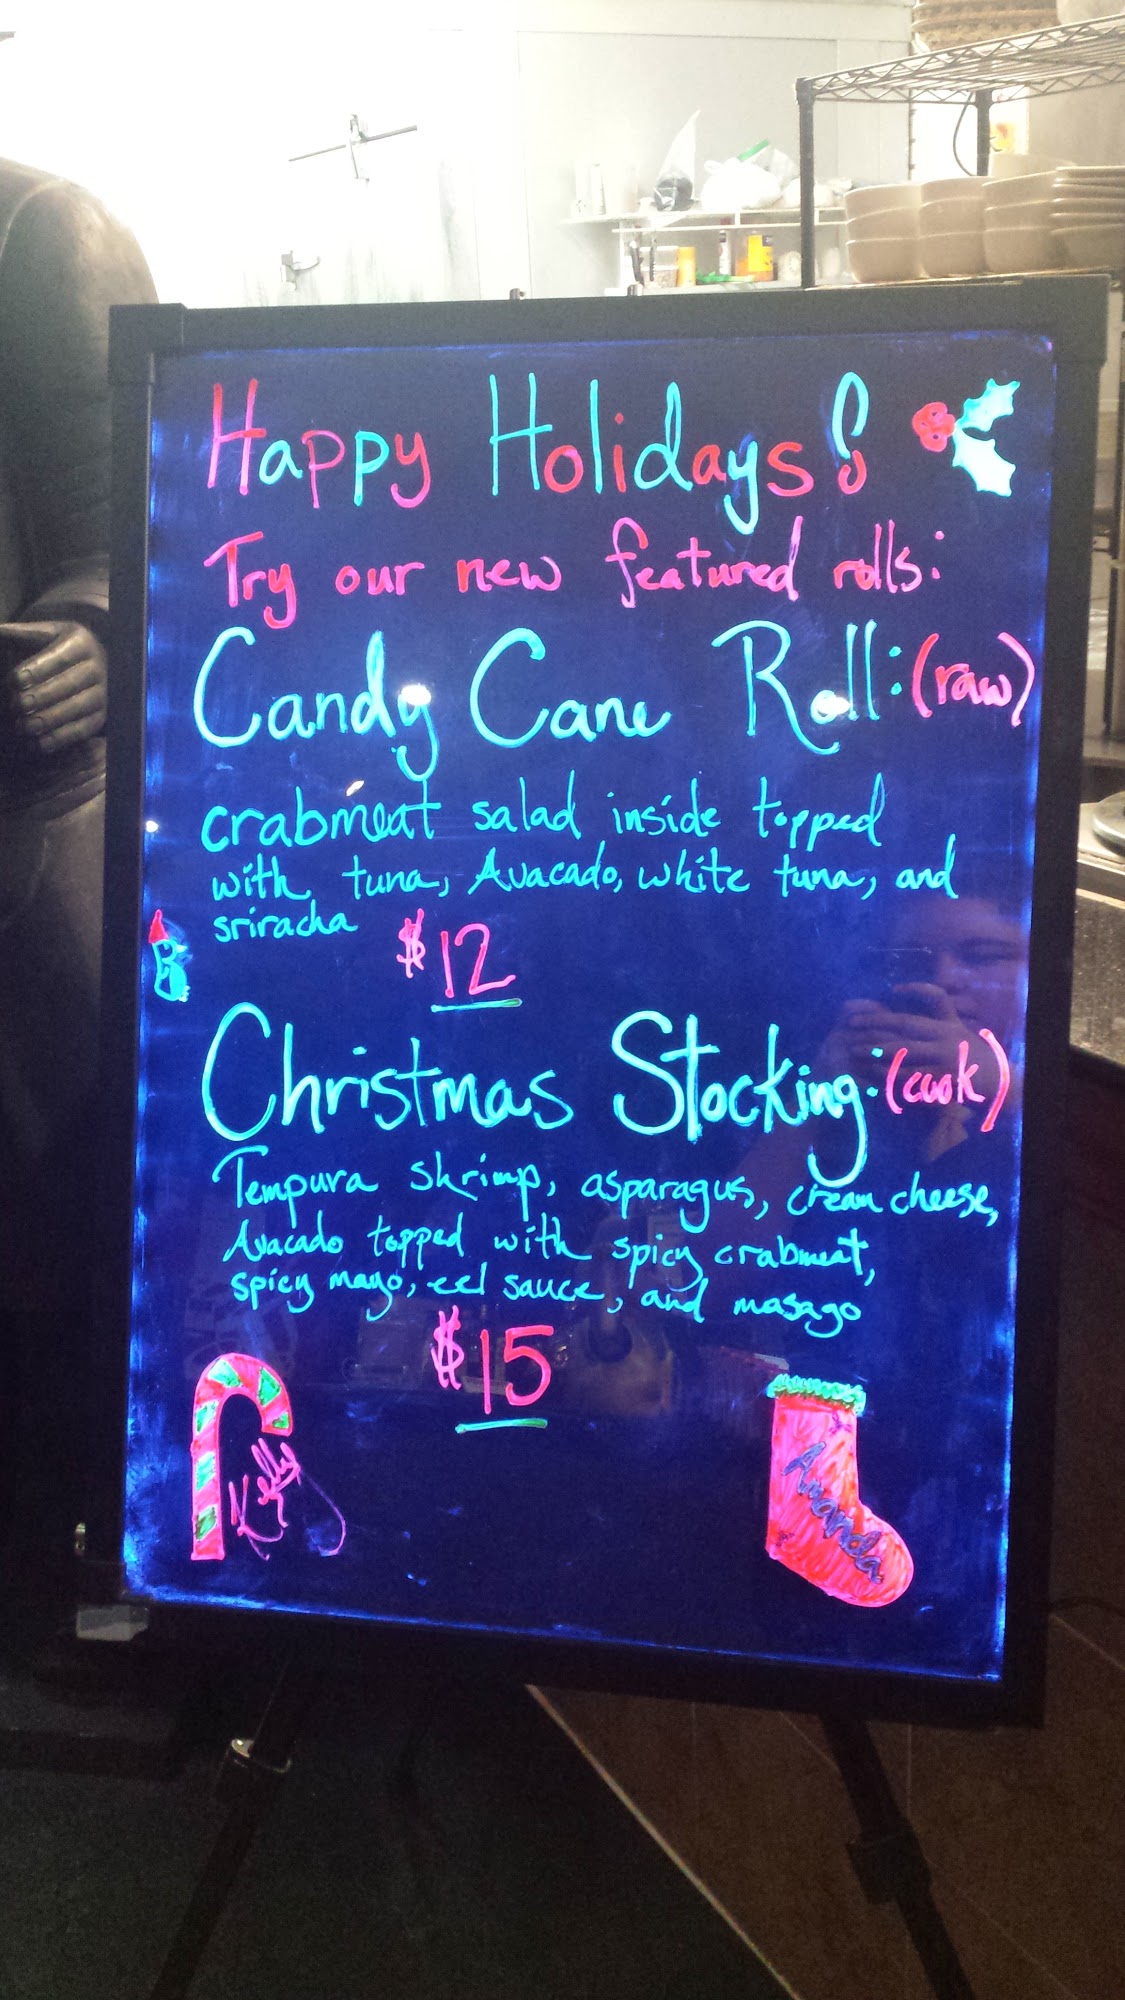 Happy Holidays!
Try our new featured rolls:
Candy Cane Roll: (raw)
crabmeat salad inside topped
with tuna, Avacado, white tuna, and
sriracha
$12
Christmas Stocking: (cook)
Tempura shrimp, asparagus, cream cheese,
Avacado topped with spicy crabmeat,
spicy mayo, eel sauce, and masago
$15
Kelly
Amanda